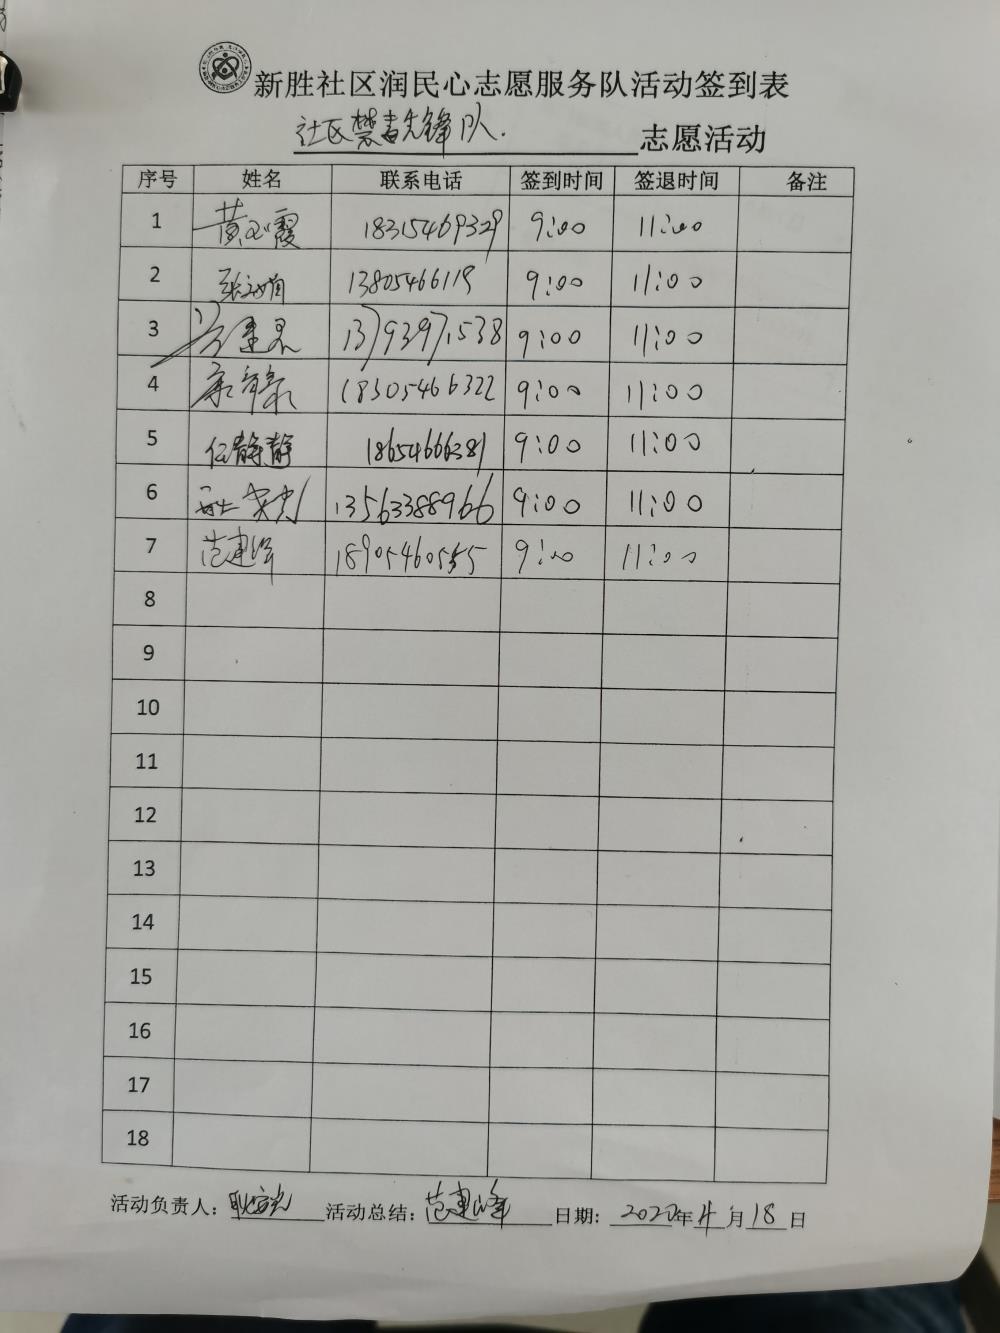 新胜社区润民心志愿服务队活动签到表
社区禁毒先锋队. 志愿活动
序号 姓名 联系电话 签到时间 签退时间 备注
1 黄 霞 18315469329 9:00 11:00
2 张 13805466119 9:00 11:00
3 13793971538 9:00 11:00
4 18305466322 9:00 11:00
5 任静静 18654666381 9:00 11:00
6 13563388966 9:00 11:00
7 范建峰 18905460555 9:00 11:00
8
9
10
11
12
13
14
15
16
17
18
活动负责人: 活动总结: 范建峰 日期: 2020年4月18日